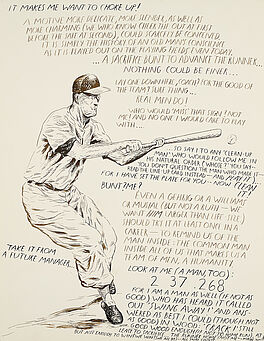 IT MAKES ME WANT TO CHOKE UP!
A MOTIVE MORE DELICATE, MORE SLENDER, AS WELL AS
MORE CHARMING (WE WHO KNOW CHEER THE OUT AT FIRST
BEFORE THE SAFE AT SECOND), COULD SCARCELY BE CONCEIVED.
IT IS SIMPLY THE HISTORY OF AN OLD MANY CONFIDENCE
AS IT IS PLAYED OUT ON THE PLAYING FIELDS EVEN TODAY.
... A SACRIFICE BUNT TO ADVANCE THE RUNNER ...
NOTHING COULD BE FINER ...
LAY ONE DOWN HERE, COACH? FOR THE GOOD OF
THE TEAM? SURE THING...
REAL MEN DO!
WHO WOULD 'MISS' THAT SIGN? NOT
ME! AND NO ONE I WOULD CARE TO PLAY
WITH...
SO SAY I TO ANY 'CLEAN-UP
MAN' WHO WOULD FOLLOW ME IN
HIS NATURAL ORDER ('WHOSE'?' THEY SAY.
DON'T QUESTION THE MAN WHO MADE IT —
READ THE LINE-UP CARD INSTEAD — AND MAYBE I —
FOR I HAVE SET THE PLATE FOR YOU — NOW CLEAN
IT!)
BUNT? ME?
EVEN A GEHRIG OR A WILLIAMS
OR MUSIAL (BUT ANY A RUTH — WE
WANT HIM LARGER THAN LIFE SIZE)
SHOULD TRY IT AT LEAST ONCE IN A
CAREER — TO REMIND US OF THE
MAN INSIDE: THE COMMON MAN
INSIDE ALL OF US THAT MAKES US A
TEAM OF MEN, A HUMANITY EVEN.
TAKE IT FROM
A FUTURE MANAGER.
LOOK AT ME (A MAN, TOO):
37 268
FOR I AM A MAN AS WELL (IF NOT AS
GOOD) WHO HAS HEARD IT CALLED
OUT "SWING AWAY" AND ANS-
WERED AS BEST I COULD (THOUGH NOT
AS GOOD) IN WOOD: 'CRACK' I STILL